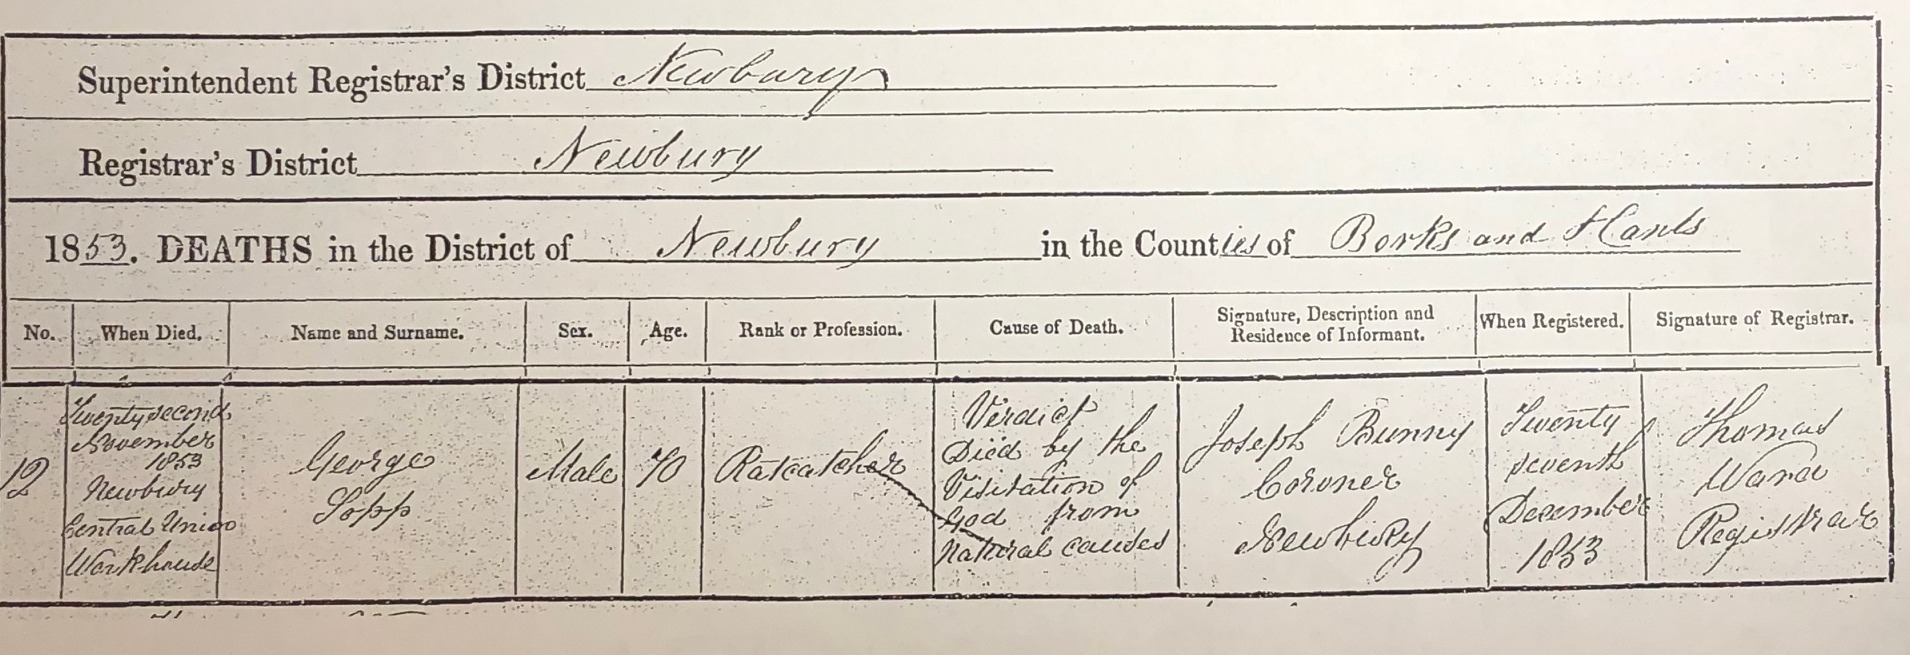 Superintendent Registrar's District Newbury
Registrar's District Newbury
1853. DEATHS in the District of Newbury in the Counties of Berks and Hants
No. When Died. Name and Surname. Sex. Age. Rank or Profession. Cause of Death. Signature, Description and Residence of Informant. When Registered. Signature of Registrar.
12
Twenty second
November
1853
Newbury
Central Union
Workhouse
George
Sopp
Male
70
Ratcatcher
Verdict
Died by the
Visitation of
God from
natural causes
Joseph Bunny
Coroner
Newbury
Twenty
seventh
December
1853
Thomas
Registrar